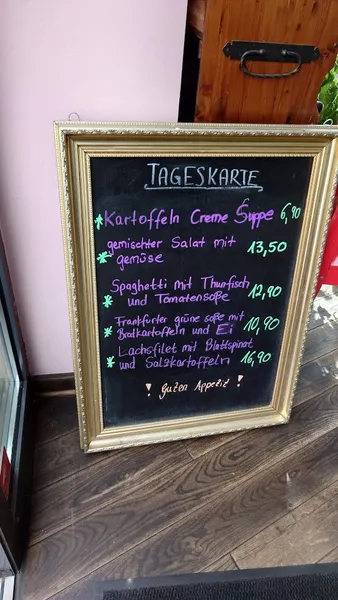 TAGESKARTE
* Kartoffeln Creme Suppe 6,90
gemischter Salat mit 13,50
* gemüse
Spaghetti mit Thunfisch
* und Tomatensoße 12,90
Frankfurter grüne soße mit
* Bratkartoffeln und Ei 10,90
Lachsfilet mit Blattspinat
* und Salzkartoffeln 16,90
! Guten Appetit !